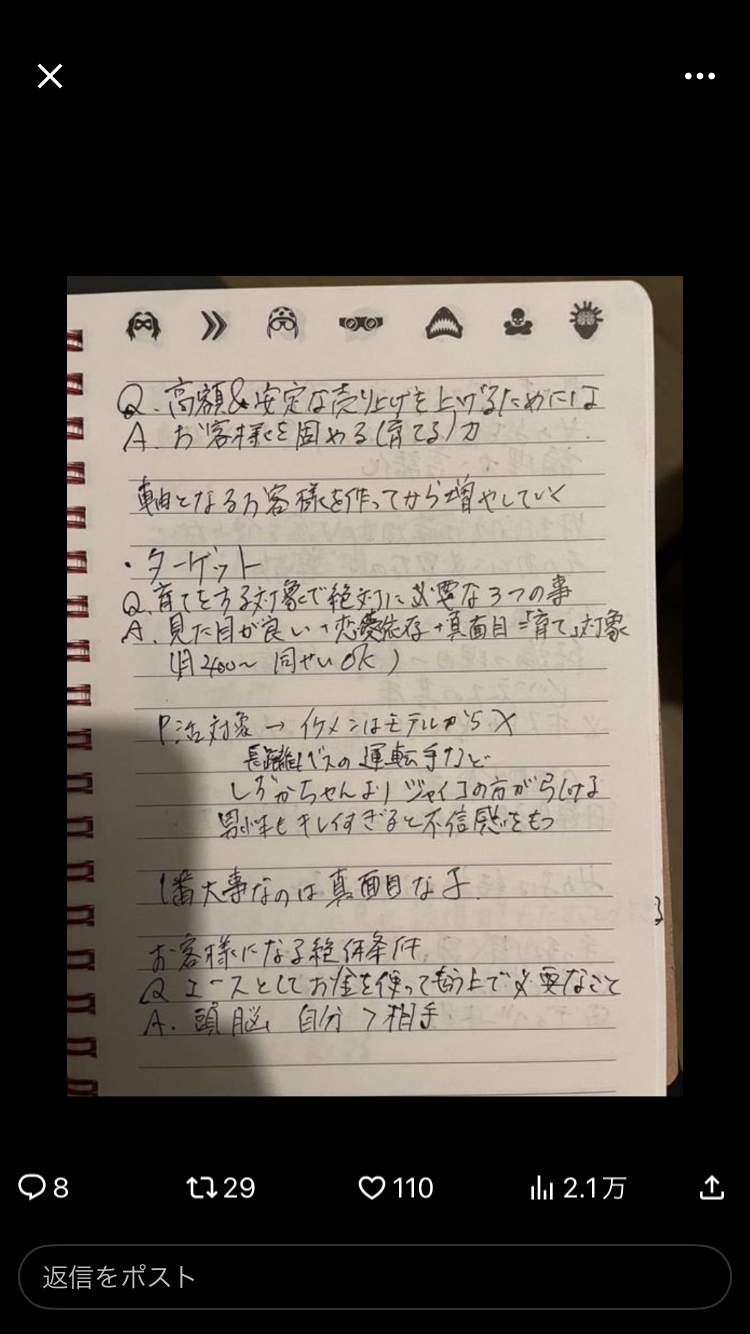 Q. 高額&安定な売り上げを上げるためには
A. お客様を固める(育てる)力
軸となるお客様を作ってから増やしていく
・ターゲット
Q. 育てをする対象で絶対に必要な3つの事
A. 見た目が良い+恋愛依存+真面目=「育て」対象
(月400〜 同せいOK)
P活対象 → イケメンはモテルから×
長距離バスの運転手など
しずかちゃんよりジャイコの方が引ける
男性もキレイすぎると不信感をもつ
1番大事なのは真面目な子
お客様になる絶体条件
Q エースとしてお金を使ってもらう上で必要なこと
A. 頭脳 自分>相手
8
29
110
2.1万
返信をポスト